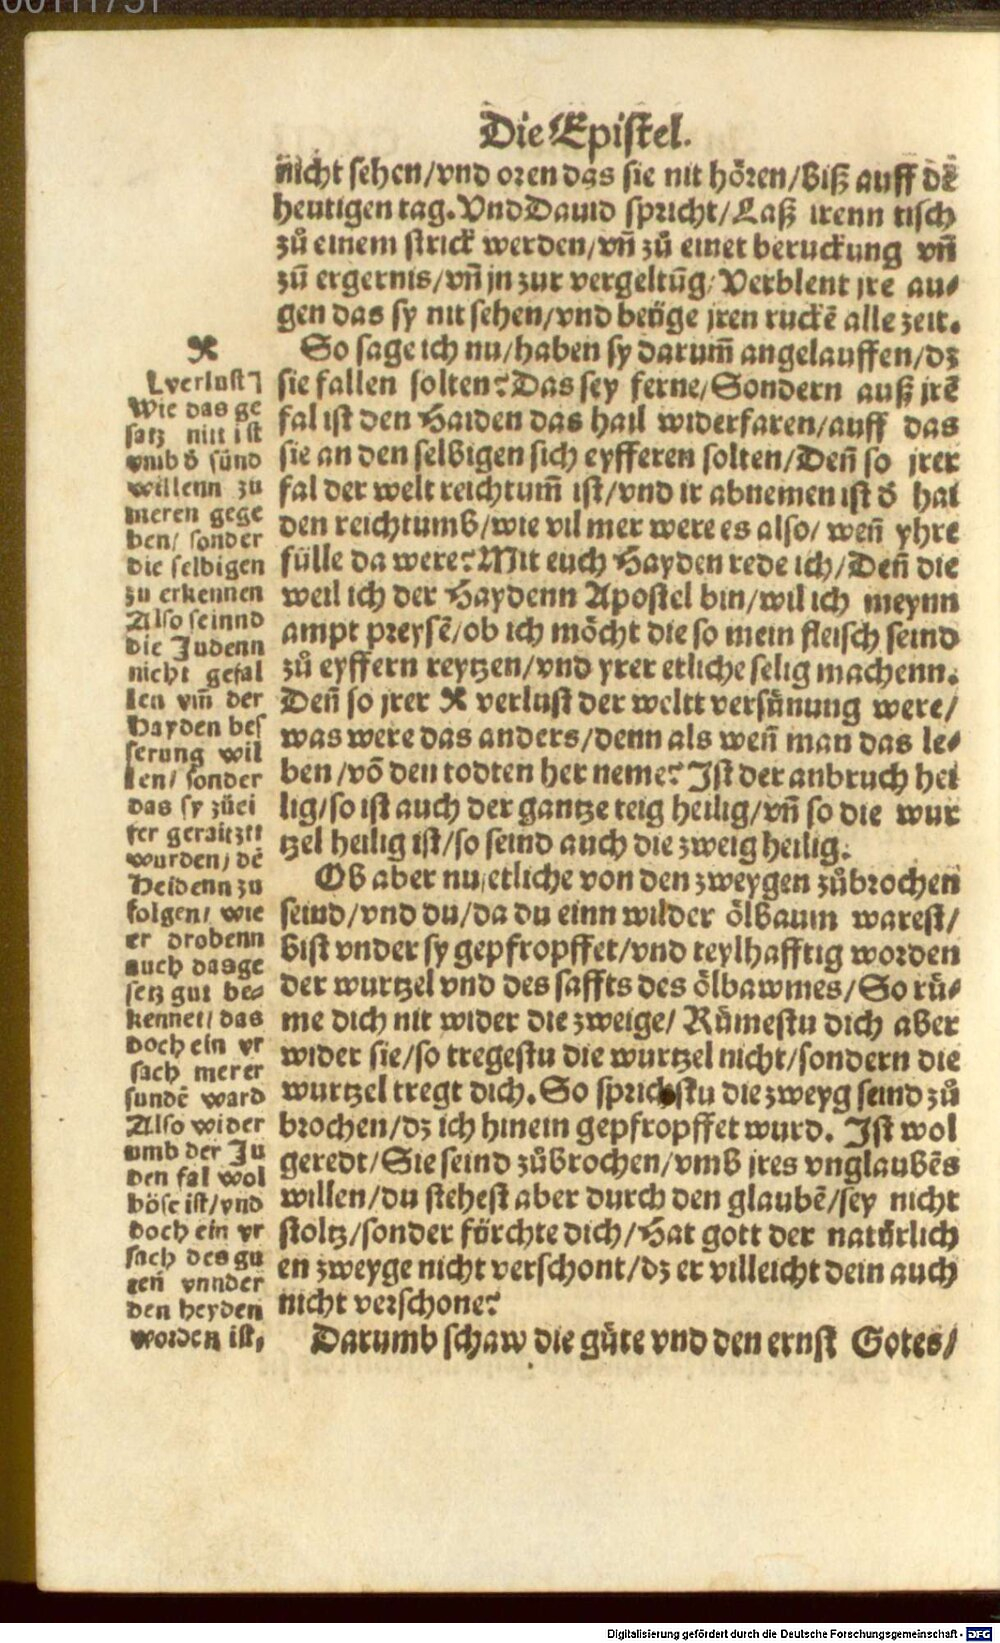 Die Epistel.
nicht sehen/vnd oren das sie nit hören/biß auff dē
heutigen tag. Vnd Dauid spricht/Laß irenn tisch
zů einem strick werden/vñ zů einer beruckung vñ
zů ergernis/vñ jn zur vergeltūg/Verblent jre au⸗
gen das sy nit sehen/vnd beüge jren ruckē alle zeit.
So sage ich nu/haben sy darum̄ angelauffen/dz
sie fallen solten? Das sey ferne/Sondern auß jrē
fal ist den Haiden das hail widerfaren/auff das
sie an den selbigen sich eyfferen solten/Deñ so jrer
fal der welt reichtum̄ ist/vnd ir abnemen ist ď hai
den reichtumb/wie vil mer were es also/weñ yhre
fülle da were? Mit euch Hayden rede ich/Deñ die
weil ich der Haydenn Apostel bin/wil ich meynn
ampt preysē/ob ich möcht die so mein fleisch seind
zů eyffern reytzen/vnd yrer etliche selig machenn.
Deñ so jrer ⁜ verlust der weltt versünung were/
was were das anders/denn als weñ man das le⸗
ben/vō den todten her neme? Ist der anbruch hei
lig/so ist auch der gantze teig heilig/vñ so die wur
tzel heilig ist/so seind auch die zweig heilig.
Ob aber nu/etliche von den zweygen zůbrochen
seind/vnd du/da du einn wilder ölbaum warest/
bist vnder sy gepfropffet/vnd teylhafftig worden
der wurtzel vnd des saffts des ölbawmes/So rü⸗
me dich nit wider die zweige/Rümestu dich aber
wider sie/so tregestu die wurtzel nicht/sondern die
wurtzel tregt dich. So sprichstu die zweyg seind zů
brochen/dz ich hinein gepfropffet wurd. Ist wol
geredt/Sie seind zůbrochen/vmb jres vnglaubēs
willen/du stehest aber durch den glaubē/sey nicht
stoltz/sonder förchte dich/Hat gott der natürlich
en zweyge nicht verschont/dz er villeicht dein auch
nicht verschone?
Darumb schaw die güte vnd den ernst Gotes/
⁜
[verlust]
Wie das ge
satz nitt ist
vmb ď sünd
willenn zu
meren gege
ben/ sonder
die selbigen
zu erkennen
Also seinnd
die Judenn
nicht gefal
len vm̄ der
Hayden bes
serung wil
len/ sonder
das sy züei
fer geraitztt
wurden/ dē
Heidenn zu
folgen/ wie
er drobenn
auch das ge
setz gut be⸗
kennet/ das
doch ein vr
sach merer
sundē ward
Also wider
vmb der Ju
den fal wol
böse ist/vnd
doch ein vr
sach des gu
ten̄ vnnder
den heyden
worden ist,
Digitalisierung gefördert durch die Deutsche Forschungsgemeinschaft - DFG